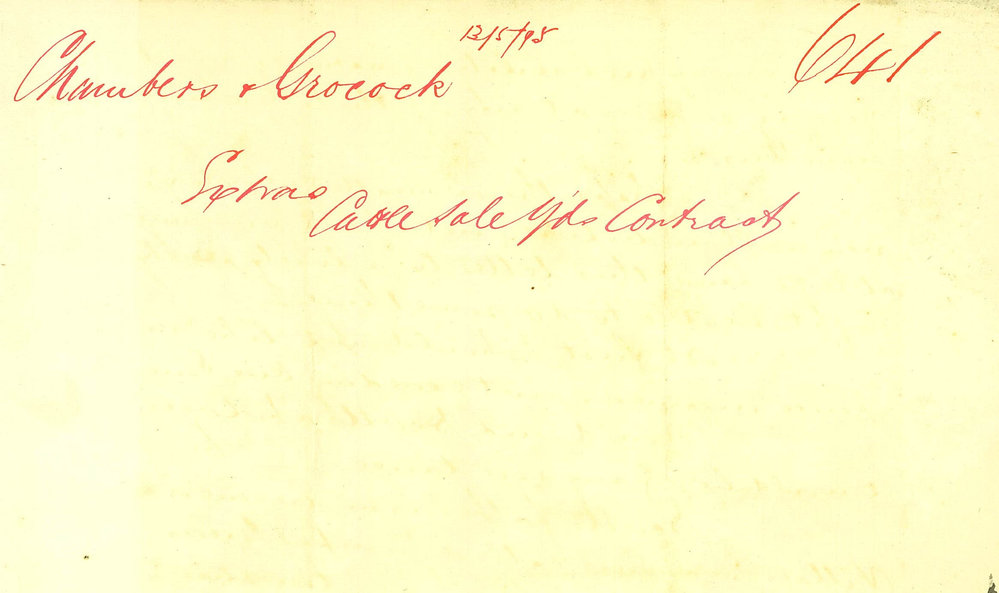 13/5/98
Chambers & Grocock
641
Extras
Cattle Sale Yds Contract